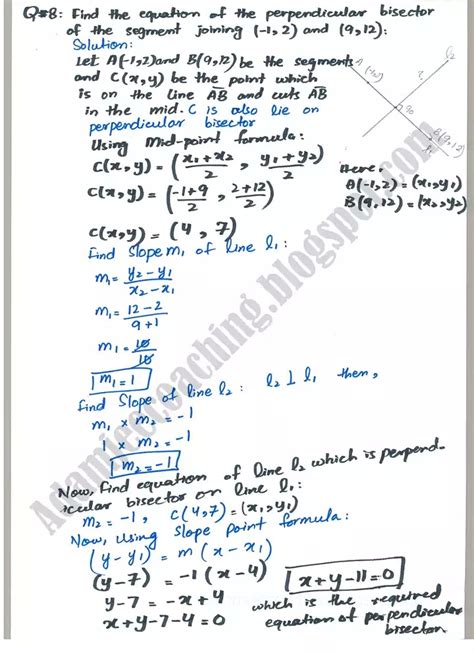 Q#8: Find the equation of the perpendicular bisector
of the segment joining (-1,2) and (9,12):
Solution:
Let A(-1,2) and B(9,12) be the segments
and C(x,y) be the point which
is on the line AB and cuts AB
in the mid. C is also lie on
perpendicular bisector
Using Mid-point formula:
C(x,y) = (x1+x2/2 , y1+y2/2)
C(x,y) = (-1+9/2 , 2+12/2)
C(x,y) = (4, 7)
A(-1,2)
l2
90
B(9,12)
l1
Here,
A(-1,2) = (x1,y1)
B(9,12) = (x2,y2)
find Slope m1 of line l1:
m1 = y2-y1/x2-x1
m1 = 12-2/9+1
m1 = 10/10
m1 = 1
find Slope of line l2: l2 ⊥ l1 then,
m1 × m2 = -1
1 × m2 = -1
m2 = -1
Now, find equation of line l2 which is perpend-
icular bisector on line l1:
m2 = -1, C(4,7) = (x1,y1)
Now, Using Slope point formula:
(y-y1) = m(x-x1)
(y-7) = -1(x-4)
y-7 = -x+4
x+y-7-4=0
x+y-11=0
which is the required
equation of perpendicular
bisector.
Adamjeecoaching.blogspot.com